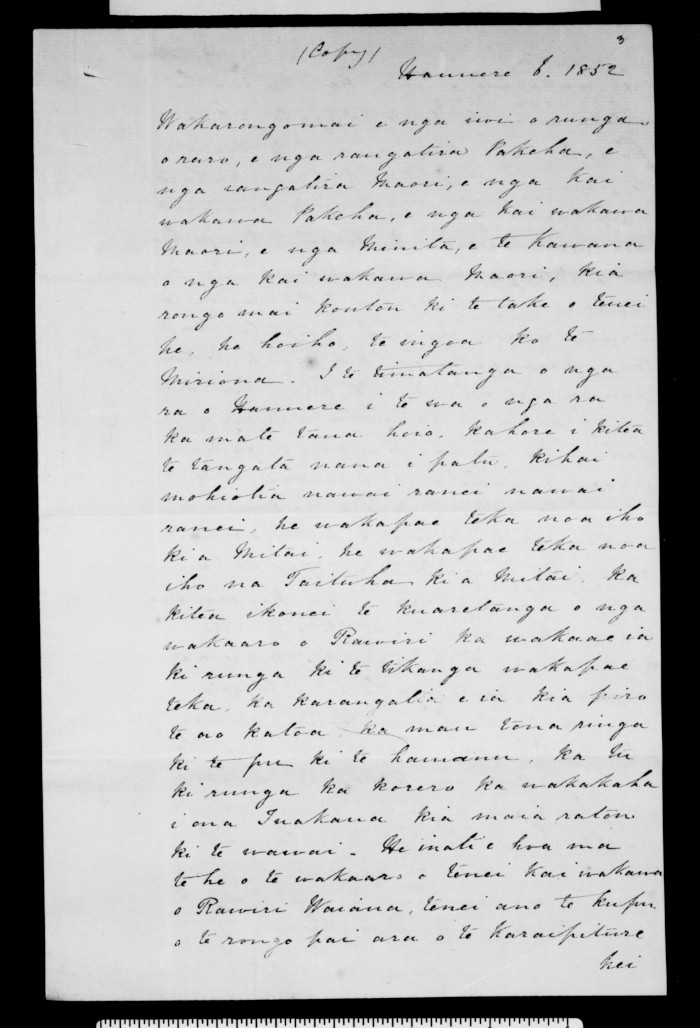 3
(Copy)
Hanuere 6. 1852
Wakarongo mai e nga iwi o runga,
o raro, e nga rangatira Pakeha, e
nga rangatira Maori, e nga Kai
wakawa Pakeha, e nga Kai wakawa
Maori, e nga Minita, e te Kawana
o nga Kai wakawa Maori, kia
rongo mai koutou ki te take o tenei
he, he hoiho, te ingoa ko te
Miriona. I te timatanga o nga
ra o Hanuere i te wa o nga ra
ka mate tana hoio, kahore i kitea
te tangata nana i patu, kihai
mohiotia nawai ranei nawai
ranei, he wakapae teka noa iho
ki a Mitai, he wakapae teka noa
iho na Taituha ki a Mitai. Ka
kitea ikonei te kuaretanga o nga
wakaaro o Rawiri ka wakaae ia
ki runga ki te tikanga wakapae
teka, ka karangatia e ia kia piro
te ao katoa, ka mau tona ringa
ki te pu ki te hamanu, ka tu
ki runga ka korero ka wakakaha
i ona Tuakana kia maia ratou
ki te wawai - He inati e hoa ma
te he o te wakaaro o tenei Kai wakawa
o Rawiri Waiana, tenei ano te kupu
o te rongo pai ara o te Karaipiture
hei